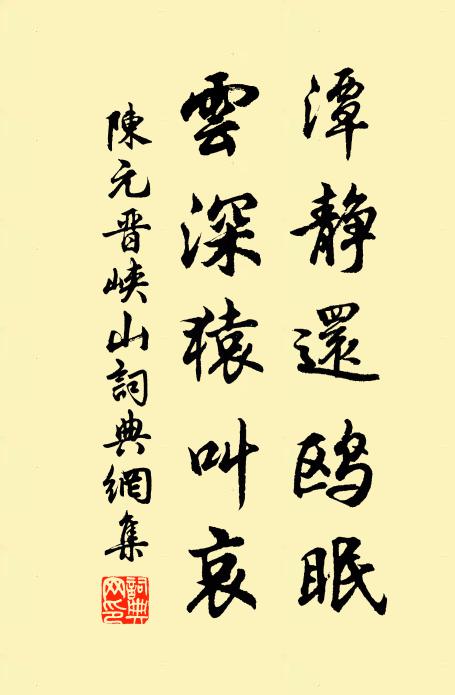 潭靜還鸥眠
雲深猿叫哀
陳元晋峽山詞典網集
詞典网印